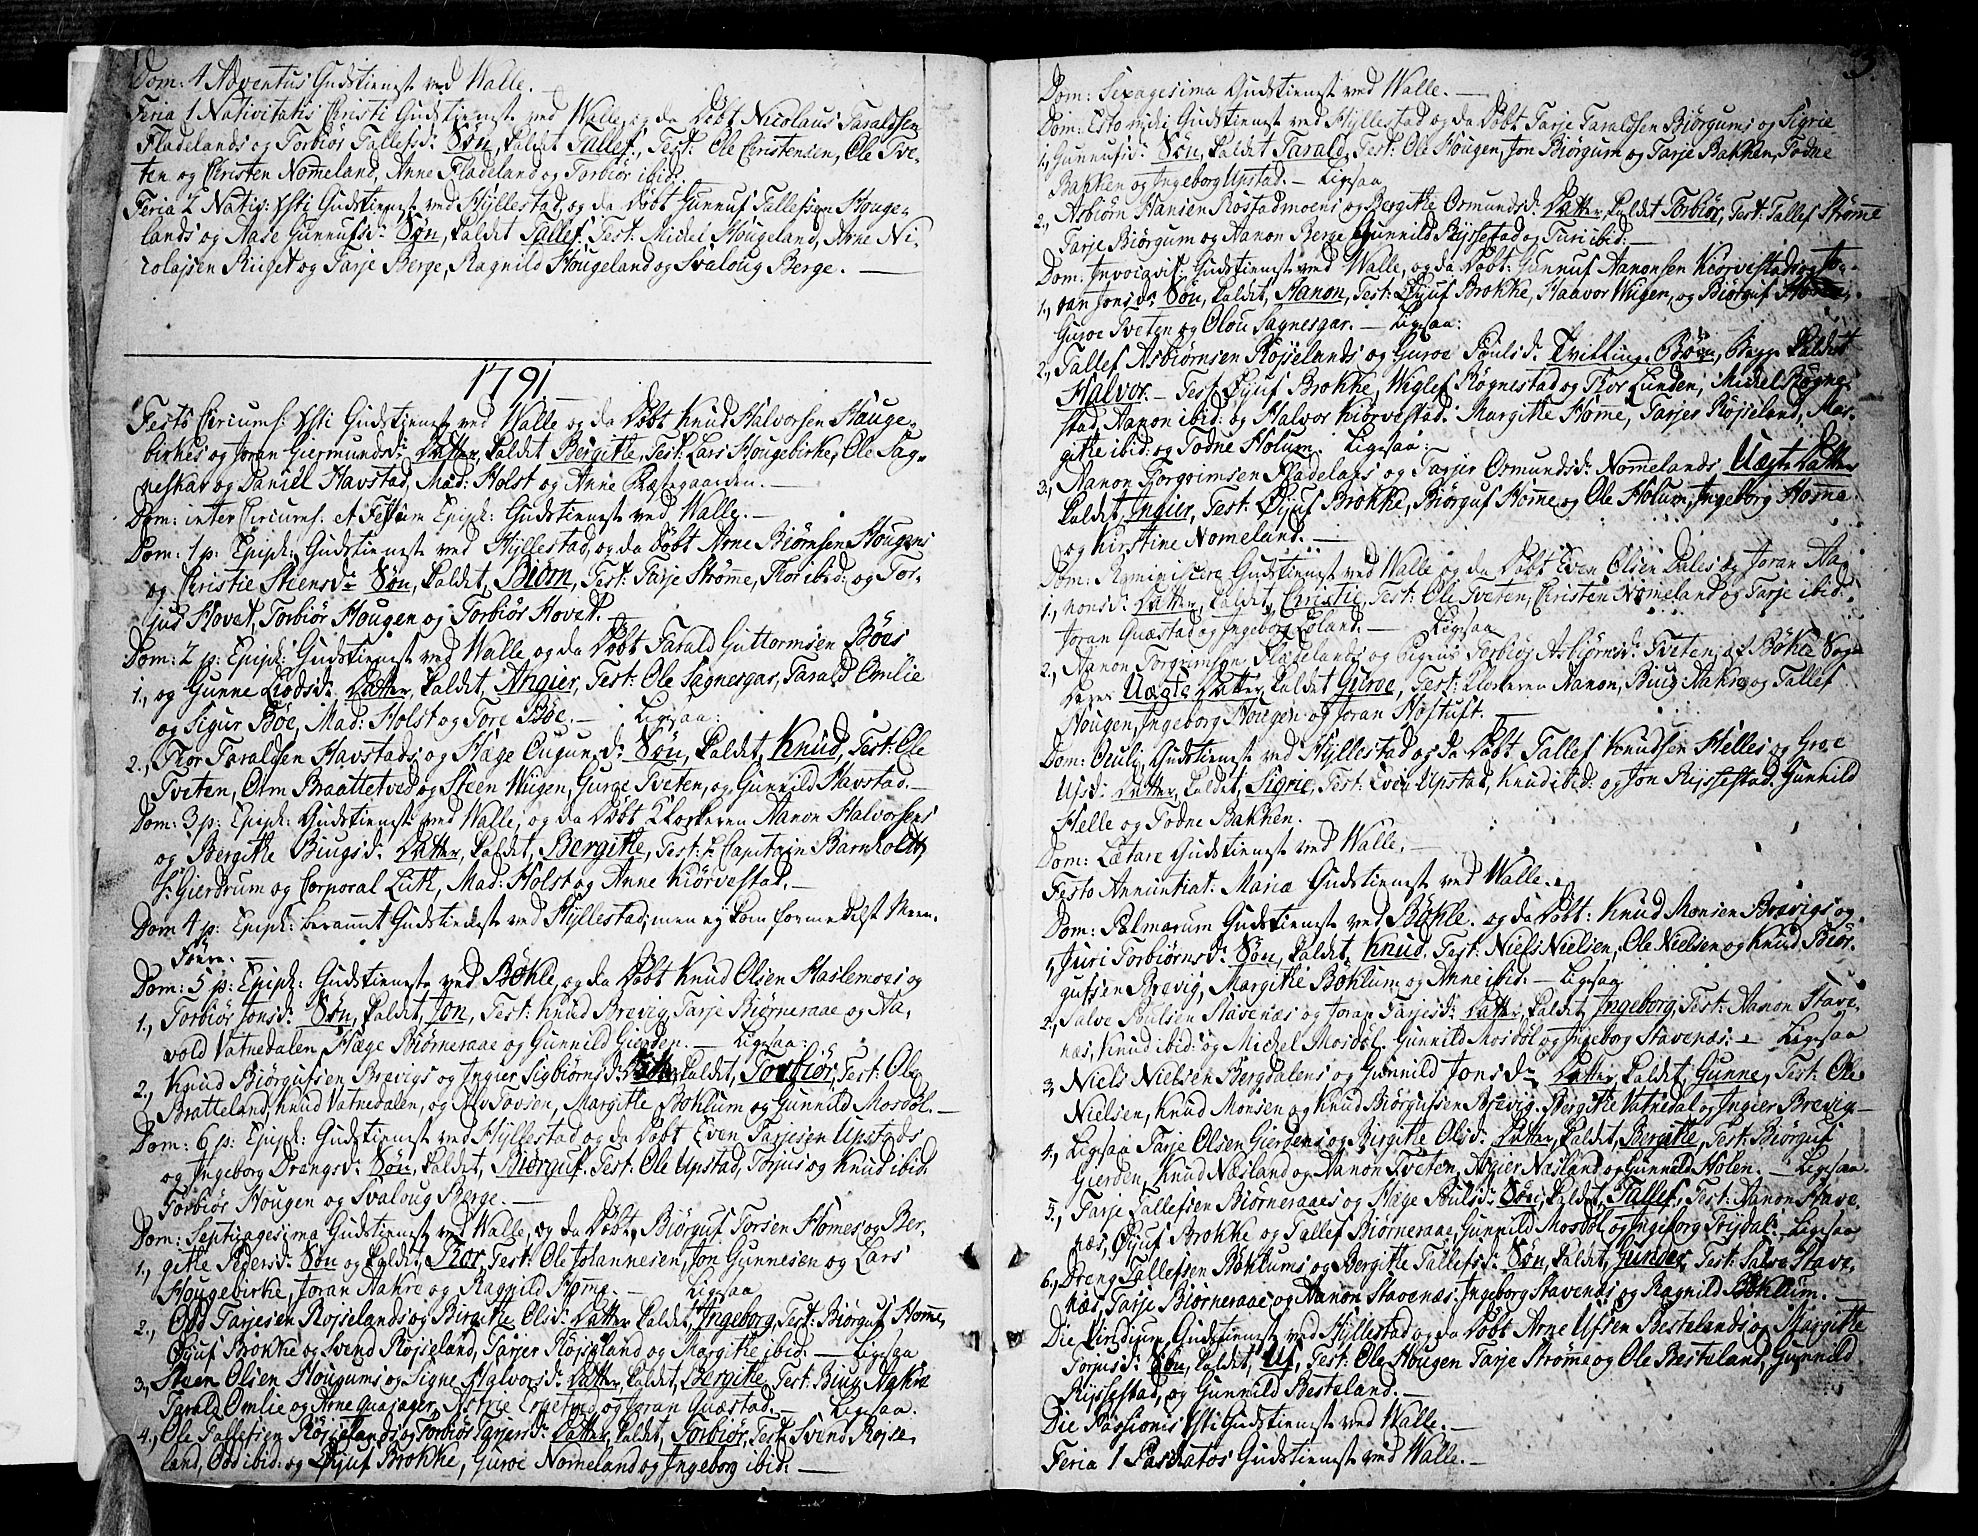 Dom: 4 Adventus Gudstieneste ved Walle. —
Feria 1 Nativitatis Christi Gudstieneste ved Walle, og da Döbt Nicolaus Taraldsen
Fladelands og Torbiör Tallefsd: Sön, kaldet Tallef, Test: Ole Christensen, Ole Tve-
ten og Christen Nomeland, Anne Fladeland og Torbiör ibid:
Feria 2 Nativ: Xsti Gudstieneste ved Hyllestad, og da Döbt Gunnuf Tallefsen Houge-
lands og Aase Gunnufsd: Sön, kaldet Tallef, Test: Michel Hougeland, Arne Ni-
colajsen Riiget og Tarje Berge, Ragnild Hougeland og Svaloug Berge. —
1791
Festo Circumc: Xsti Gudstieneste ved Walle og da Döbt Knud Halvorsen Houge-
birkes og Joran Giermundsd: Datter, kaldet Bergitte, Test: Lars Hougebirke, Ole Sag-
neskar og Daniel Havstad, Mad: Holst og Anne Præstegaarden. —
Dom: inter Circumc: et Festum Epiph: Gudstieneste ved Walle. —
Dom: 1 p: Epiph: Gudstieneste ved Hyllestad, og da Döbt Arne Biörnsen Hougens
og Christie Steensd: Sön, kaldet, Biörn, Test: Tarje Strömme, Thor ibid: og Tor-
jus Hovet, Torbiör Hougen og Torbiör Hovet. —
Dom: 2 p: Epiph: Gudstieneste ved Walle og da Döbt Tarald Guttormsen Böes
1., og Gunne Liodsd: Datter, kaldet, Angier, Test: Ole Sagnesgar, Tarald Omlie
og Sigur Böe, Mad: Holst og Tore Böe. — Ligesaa:
2., Thor Taraldsen Havstads og Hæge Eugunsd: Sön, kaldet, Knud, Test: Ole
Tveten, Orm Braattetved og Steen Wiigen, Guroe Tveten, og Gunnild Havstad. —
Dom: 3 p: Epiph: Gudstieneste ved Walle, og da Döbt Klokkeren Aanon Halvorsens
og Bergitte Biugsd: Datter, kaldet, Bergitte, Test: Hr Capitain Barnholdt,
Hr: Gierdrum og Corporal Lütz, Mad: Holst og Anne Kiörvestad. —
Dom 4 p: Epiph: berammet Gudstieneste ved Hyllestad, men ej kom formedelst Meen-
före. —
Dom: 5 p: Epiph: Gudstieneste ved Bökle, og da Döbt Knud Olsen Haslemoes og
1., Torbiör Jonsd: Sön, kaldet, Jon, Test: Knud Brevig, Tarje Biörneraae og Aa-
vold Vatnedalen, Hæge Biörneraae og Gunnild Gierden. — Ligesaa:
2., Knud Biörgufsen Brevigs og Ingier Sigbiörnsd: Datter, kaldet, Torbiör, Test: Ole
Bratteland, Knud Vatnedalen, og Alv Tovsen, Margitte Böklum og Gunnild Mosdöl. —
Dom: 6 p: Epiph: Gudstieneste ved Hyllestad og da Döbt Even Tarjesen Upstads
og Ingeborg Drengsd: Sön, kaldet, Biörguf. Test: Ole Upstad, Torjus og Knud ibid:
Torbiör Hougen og Svaloug Berge. —
Dom: Septuagesima Gudstieneste ved Walle, og da Döbt, Biörguf Torsen Homes og Ber-
1., gitte Pedersd: Sön og kaldet, Thor, Test: Ole Johannesen, Jon Gunnesen og Lars
Hougebirke, Joran Aakre og Ragnild Homme. — Ligesaa
2., Odd Tarjesen Röjselands og Birgitte Olsd: Datter kaldet, Ingeborg, Test: Biörguf Homme,
Öyuf Brokke og Svend Röjseland, Tarjer Röjseland og Margitte ibid: — Ligesaa
3., Steen Olsen Hougums og Signe Halvorsd: Datter, kaldet, Bergitte, Test: Biug Aakre
Tarald Omlie og Arne Quajager, Astrie Ergetved og Joran Quæstad. — Ligesaa:
4., Ole Tallefsen Röjselands og Torbiör Tarjersd: Datter, kaldet, Torbiör, Test: Svend Röjse-
land, Odd ibid: og Öyuf Brokke, Guroe Nomeland og Ingeborg ibid: —
3.
Dom: Sexagesima Gudstieneste ved Walle. —
Dom: Esto mihi: Gudstieneste ved Hyllestad og da Döbt Tarje Taraldsen Biörgums og Sigrie
1., Gunnufsd: Sön, kaldet, Tarald, Test: Ole Hougen, Jon Biörgum og Tarje Bakken, Todne
Bakken og Ingeborg Upstad. — Ligesaa
2., Asbiörn Hansen Rostadmoens og Bergitte Ormundsd: Datter, kaldet Torbiör, Test: Tallef Strömme
Tarje Biörgum og Aanon Berge, Gunnild Ryssestad og Turi ibid: —
Dom: Invocavit: Gudstieneste ved Walle, og da Döbt: Gunnuf Aanonsen Kiörvestads og Jo-
1., ran Jonsd: Sön, kaldet, Aanon, Test: Öyuf Brokke, Haavor Wiigen, og Biörguf Homme,
Guroe Tveten og Olou Sagnesgar. — Ligesaa:
2., Tallef Asbiörnsen Röjselands og Guroe Poulsd: Tvilling-Börn, begge kaldet
Halvor. — Test: Öyuf Brokke, Wiglef Rögnestad og Thor Lunden; Michel Rögne-
stad, Aanon ibid: og Halvor Kiörvestad: Margitte Home, Tarjer Röjseland, Mar-
gitte ibid: og Todne Holum. Ligesaa:
3., Aanon Torgrimsen Fladelands og Tarjer Ormundsd: Nomelands Uægte Datter
kaldet, Ingier, Test: Öyuf Brokke, Biörguf Home og Ole Holum, Ingeborg Homme
og Kirstine Nomeland. —
Dom: Reminiscere Gudstieneste ved Walle og da Döbt Even Olsen Dales og Joran Aa-
1., nonsd: Datter, kaldet, Christie, Test: Ole Tveten, Christen Nomeland og Tarje ibid:
Joran Quæstad og Ingeborg Löland. — Ligesaa
2., Aanon Torgrimsen Fladelands og Pigens Torbiör Asbiörnsd: Tveten, af Bökle Sogn
deres Uægte Datter, kaldet Guroe, Test: Klokkeren Aanon, Biug Aakre og Tallef
Hougen, Ingeborg Hougen og Joran Hoftuft. —
Dom: Oculi Gudstieneste ved Hyllestad og da Döbt Tallef Knudsen Helles og Groe
Ufsd: Datter, kaldet, Sigrie, Test: Even Upstad, Knud ibid: og Jon Ryssestad. Gunnild
Helle og Todne Bakken. —
Dom: Lætare Gudstieneste ved Walle. —
Festo Annuntiat: Mariæ Gudstieneste ved Walle. —
Dom: Palmarum Gudstieneste ved Bökle. og da Döbt: Knud Monsen Brevigs og
1, Juri Torbiörnsd: Sön, kaldet, Knud. Test: Niels Nielsen, Ole Nielsen og Knud Biör-
gufsen Brevig, Margitte Böklum og Anne ibid: — Ligesaa
2., Salve Poulsen Stavenæs og Joran Tarjesd: Datter, kaldet, Ingeborg, Test: Aanon Stave-
næs, Knud ibid: og Michel Mosdöl. Gunnild Mosdöl og Ingeborg Stavenæs: — Ligesaa
3, Niels Nielsen Bergdalens og Gunnild Jonsd: Datter, kaldet, Gunne, Test: Ole
Nielsen, Knud Monsen og Knud Biörgufsen Brevig. Bergitte Vatnedal og Ingier Brevig. —
4., Ligesaa Tarje Olsen Gierdens og Birgitte Olsd: Datter, kaldet, Bergitte, Test: Biörguf
Gierden, Knud Næsland og Aanon Tveten, Angier Næsland og Gunnild Holen. — Ligesaa
5., Tarje Tallefsen Biörneraaes og Hæge Poulsd: Sön, kaldet, Tallef, Test: Aanon Stave-
næs, Öyuf Brokke og Tallef Biörneraae, Gunnild Mosdöl og Ingeborg Trigdal: Ligesaa
6., Dreng Tallefsen Böklums og Bergitte Tallefsd: Sön, kaldet, Gunder, Test: Salve Stave-
næs, Tarje Biörneraae og Aanon Stavenæs. Ingeborg Stavenæs og Ragnild Böklum. —
Die Viridium, Gudstieneste ved Hyllestad og da Döbt Arne Ufsen Bestelands og Margitte
Torjusd: Sön, kaldet, Uf, Test: Ole Hougen Tarje Ströme og Ole Besteland, Gunnild
Ryssestad, og Gunnild Besteland. —
Die Passionis Xsti Gudstieneste ved Walle. —
Feria 1 Paschatos Gudstieneste ved Walle. —